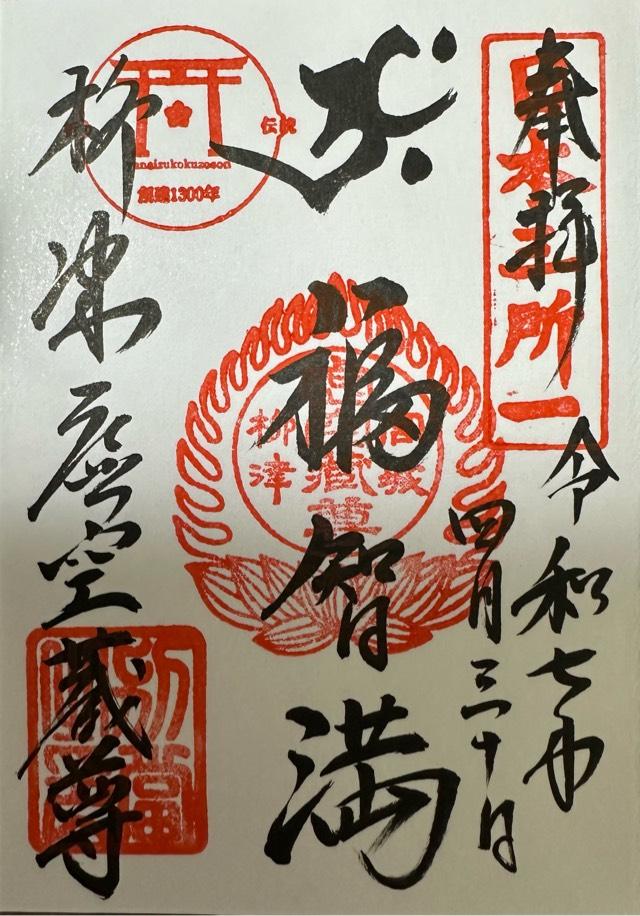 奉拝
日本三所一
令和七年
四月三十日
福智満
虚空蔵尊
柳津
柳津虚空藏尊
伝統
anaizukokuzoson
創建1300年
別當